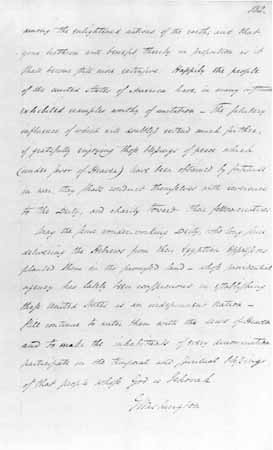 among the enlightened nations of the earth; and that
your brethren will benefit thereby in proportion as it
shall become still more extensive. Happily the people
of the United States of America have, in many instances
exhibited examples worthy of imitation – The salutary
influence of which will doubtless extend much farther,
if gratefully enjoying those blessings of peace which
(under favor of Heaven) have been obtained by fortitude
in war, they shall conduct themselves with reverence
to the Deity, and charity toward their fellow-creatures.
May the same wonder-working Deity, who long since
delivering the Hebrews from their Egyptian Oppressors
planted them in the promised land – whose providential
agency has lately been conspicuous in establishing
these United States as an independent nation –
still continue to water them with the dews of Heaven
and to make the inhabitants of every denomination
participate in the temporal and spiritual blessings
of that people whose God is Jehovah.
G. Washington